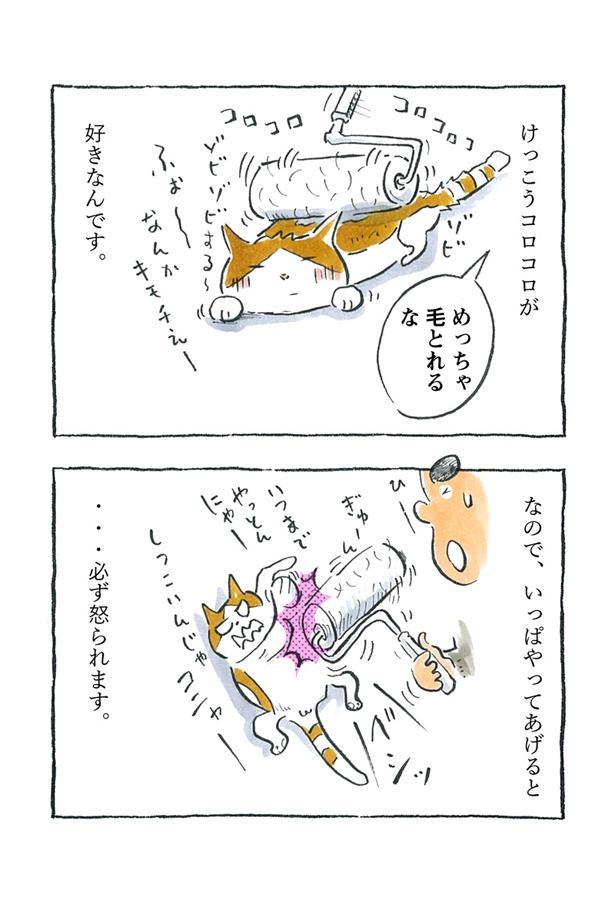 けっこうコロコロが
コロコロ
コロコロ
ゾビ
めっちゃ
毛とれる
な
ゾビゾビする〜
ふぉ〜
なんか
キモチえー
好きなんです。
なので、いっぱやってあげると
ひー
ぎゅーん
いつまで
やっとん
にゃー
しつこいんじゃ
コニャー
バシッ
・・・必ず怒られます。